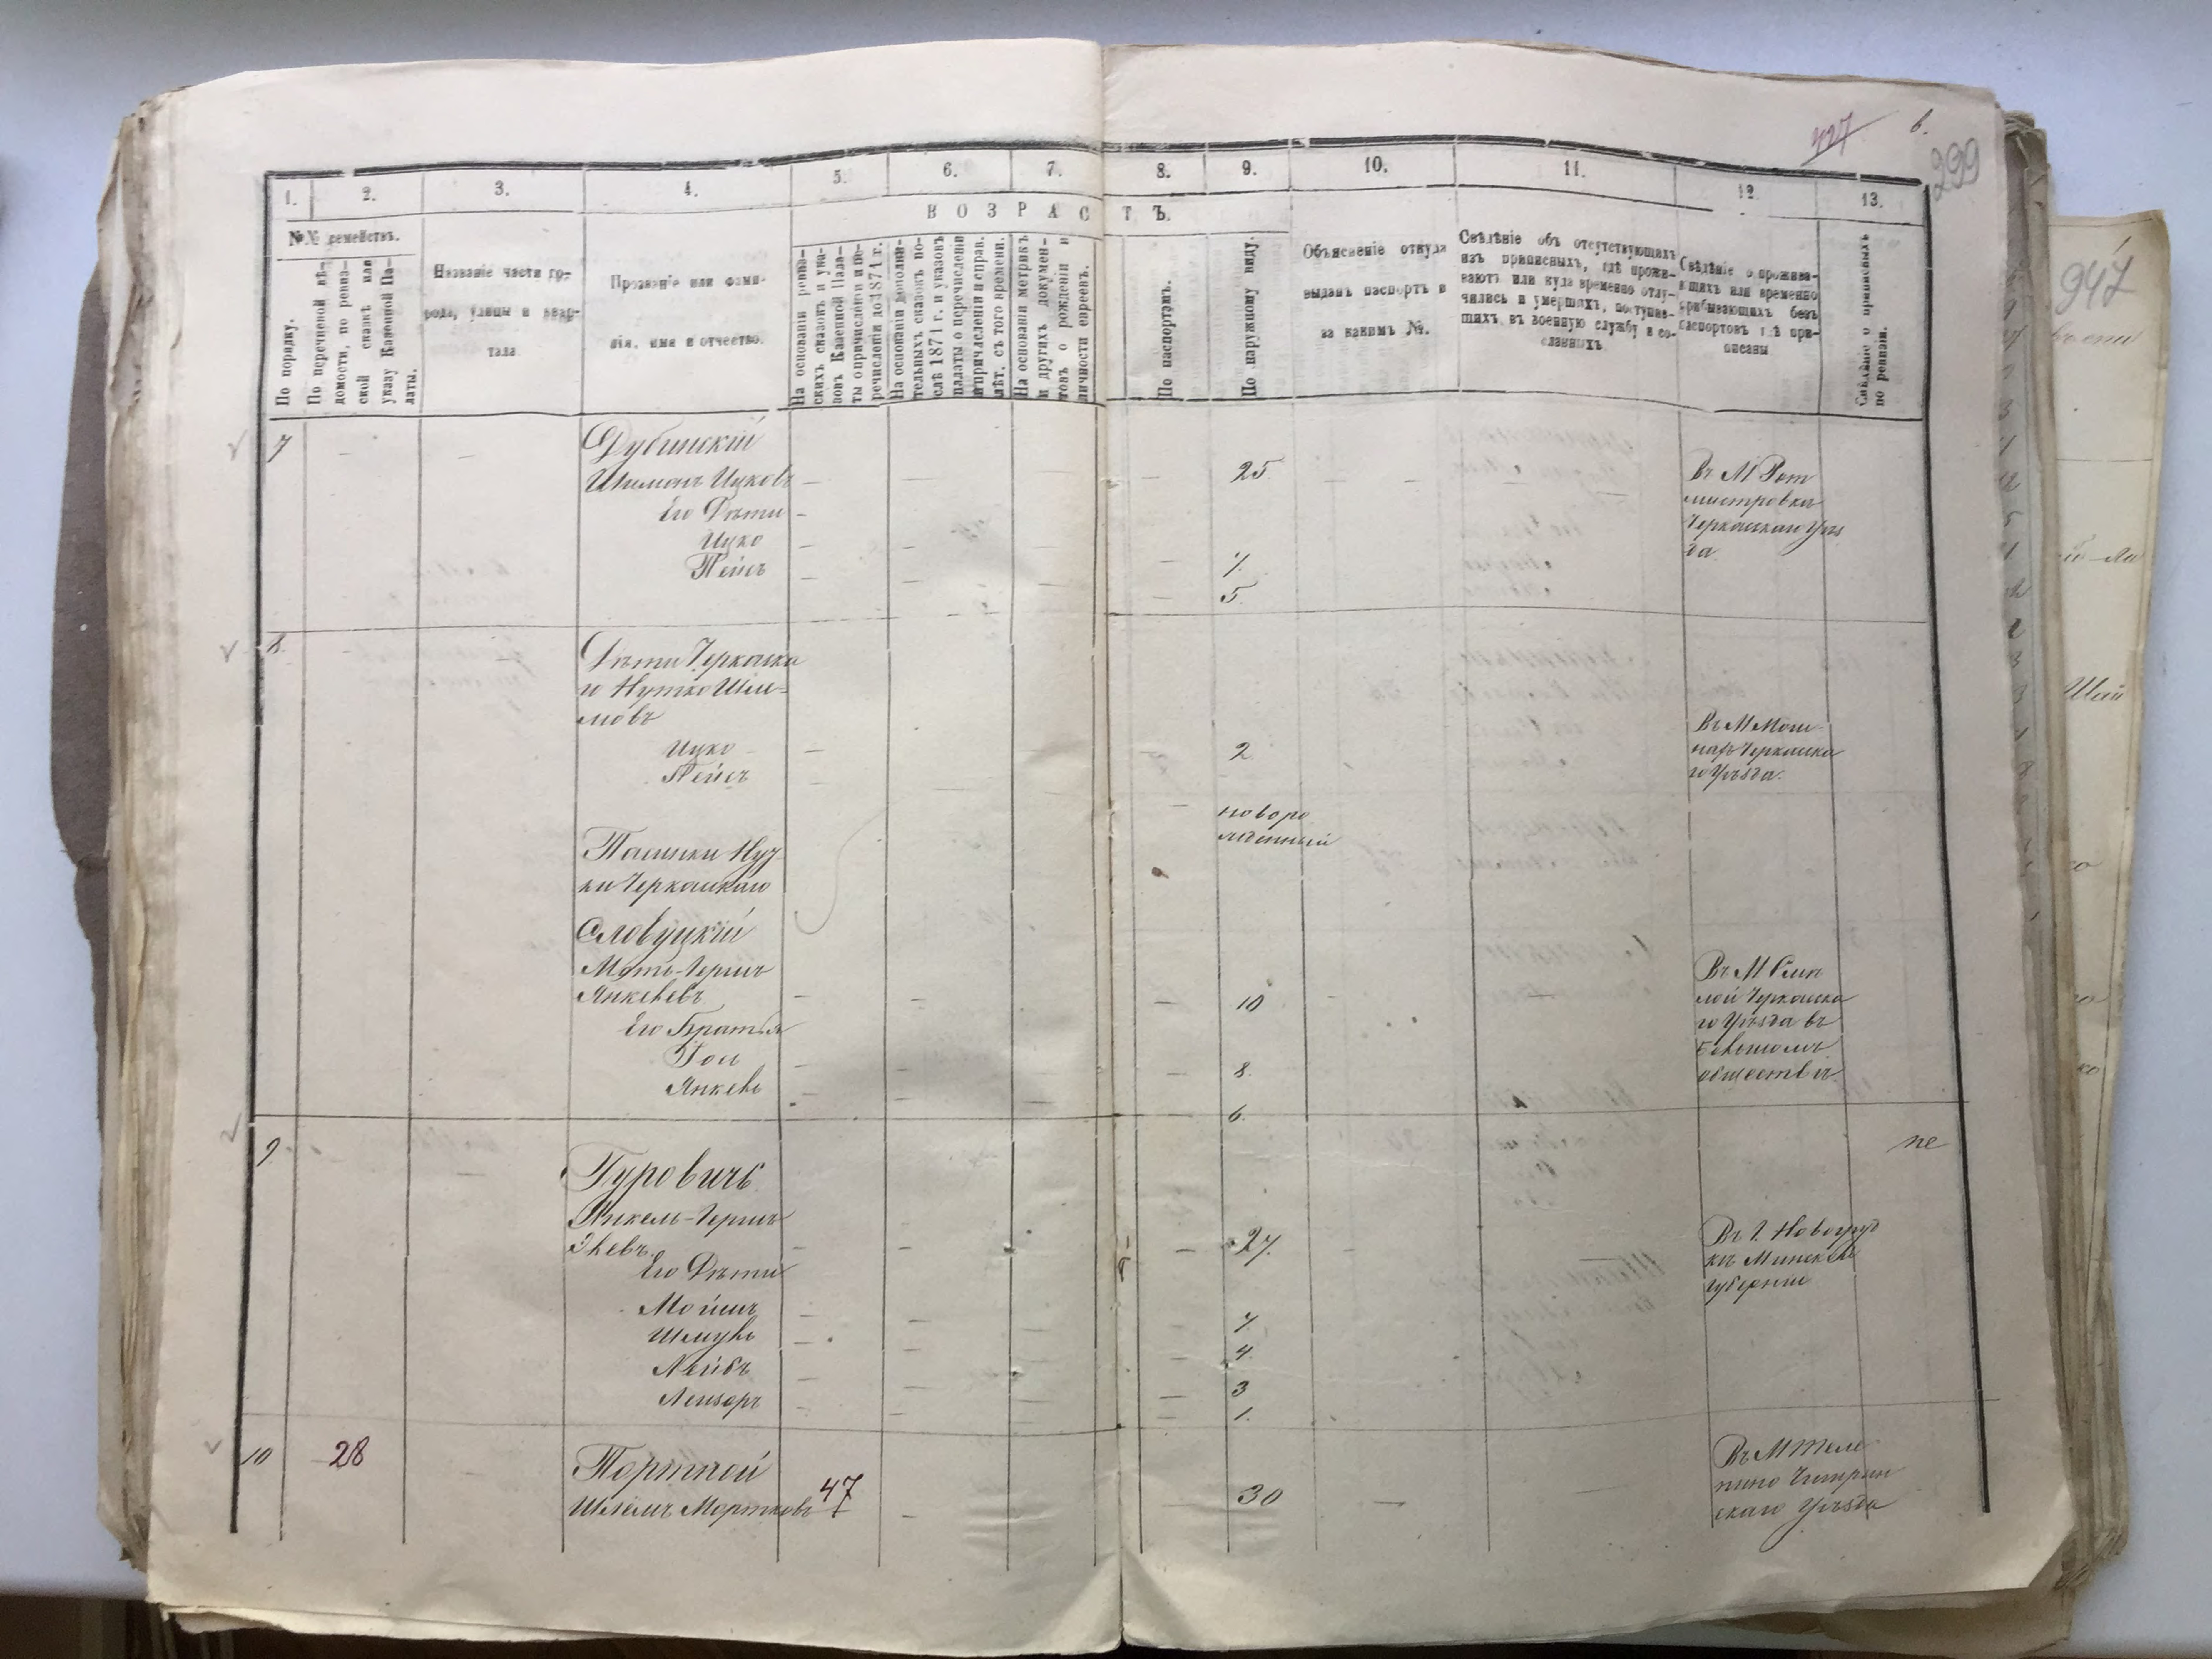 427
6.
299
1. 2. 3. 4. 5. 6. 7. 8. 9. 10. 11. 12. 13.
В О З Р А С Т Ъ.
№№ семействъ.
По порядку.
По перечневой вѣ-
домости, по ревиз-
ской сказкѣ или
указу Казенной Па-
латы.
Названіе части го-
рода, улицы и квар-
тала
Прозваніе или фами-
лія, имя и отчество.
На основаніи реви-
скихъ сказокъ и ука-
зовъ Казенной Пала-
ты о причисленіи и пе-
речисленіи до 1871 г.
На основаніи дополни-
тельныхъ сказокъ по-
слѣ 1871 г. и указовъ
палаты о перечисленіи
и причисленіи и справ.
лѣт. съ того времени.
На основаніи метрикъ
и другихъ докумен-
товъ о рожденіи и
личности евреевъ.
По паспортамъ.
По наружному виду.
Объясненіе откуда
выданъ паспортъ и
за какимъ №.
Свѣдѣніе объ отсутствующихъ
изъ приписныхъ, гдѣ прожи-
ваютъ или куда временно отлу-
чились и умершихъ, поступив-
шихъ въ военную службу и со-
сланныхъ
Свѣдѣніе о прожива-
ющихъ или временно
прибывающихъ безъ
паспортовъ гдѣ при-
писаны
Свѣдѣніе о приписныхъ
по ревизіи.
7
Дубинскій
Шимонъ Ицковъ 25 Въ М Рот
мистровкѣ
Его Дѣти Черкаскаго Уѣз
да
Ицко 7.
Лейбъ 5.
8.
Дѣти Черкаска
го Нутко Шли-
мовъ
Ицко 2 Въ М Мош-
нахъ Черкаска
го Уѣзда.
Лейбъ
новоро
жденный
Пасынки Нут-
ки Черкаскаго
Словуцкій
Моть-Гершъ
Янкелевъ 10 Въ М Смѣ
лой Черкаска
го Уѣзда въ
обществѣ
Его Братья
Гои 8.
Янкель 6.
9 не
Гуровичъ
Янкель-Гершъ 27. Въ Г. Новогруд
кѣ Минской
Губерніи
Его Дѣти
Мойшъ 7.
Шмуль 4.
Лейбъ 3
Лейзоръ 1.
10 28
Портной
Шлемъ Мортковъ 47 30 Въ М Теле
пино Чигрин
скаго Уѣзда
947